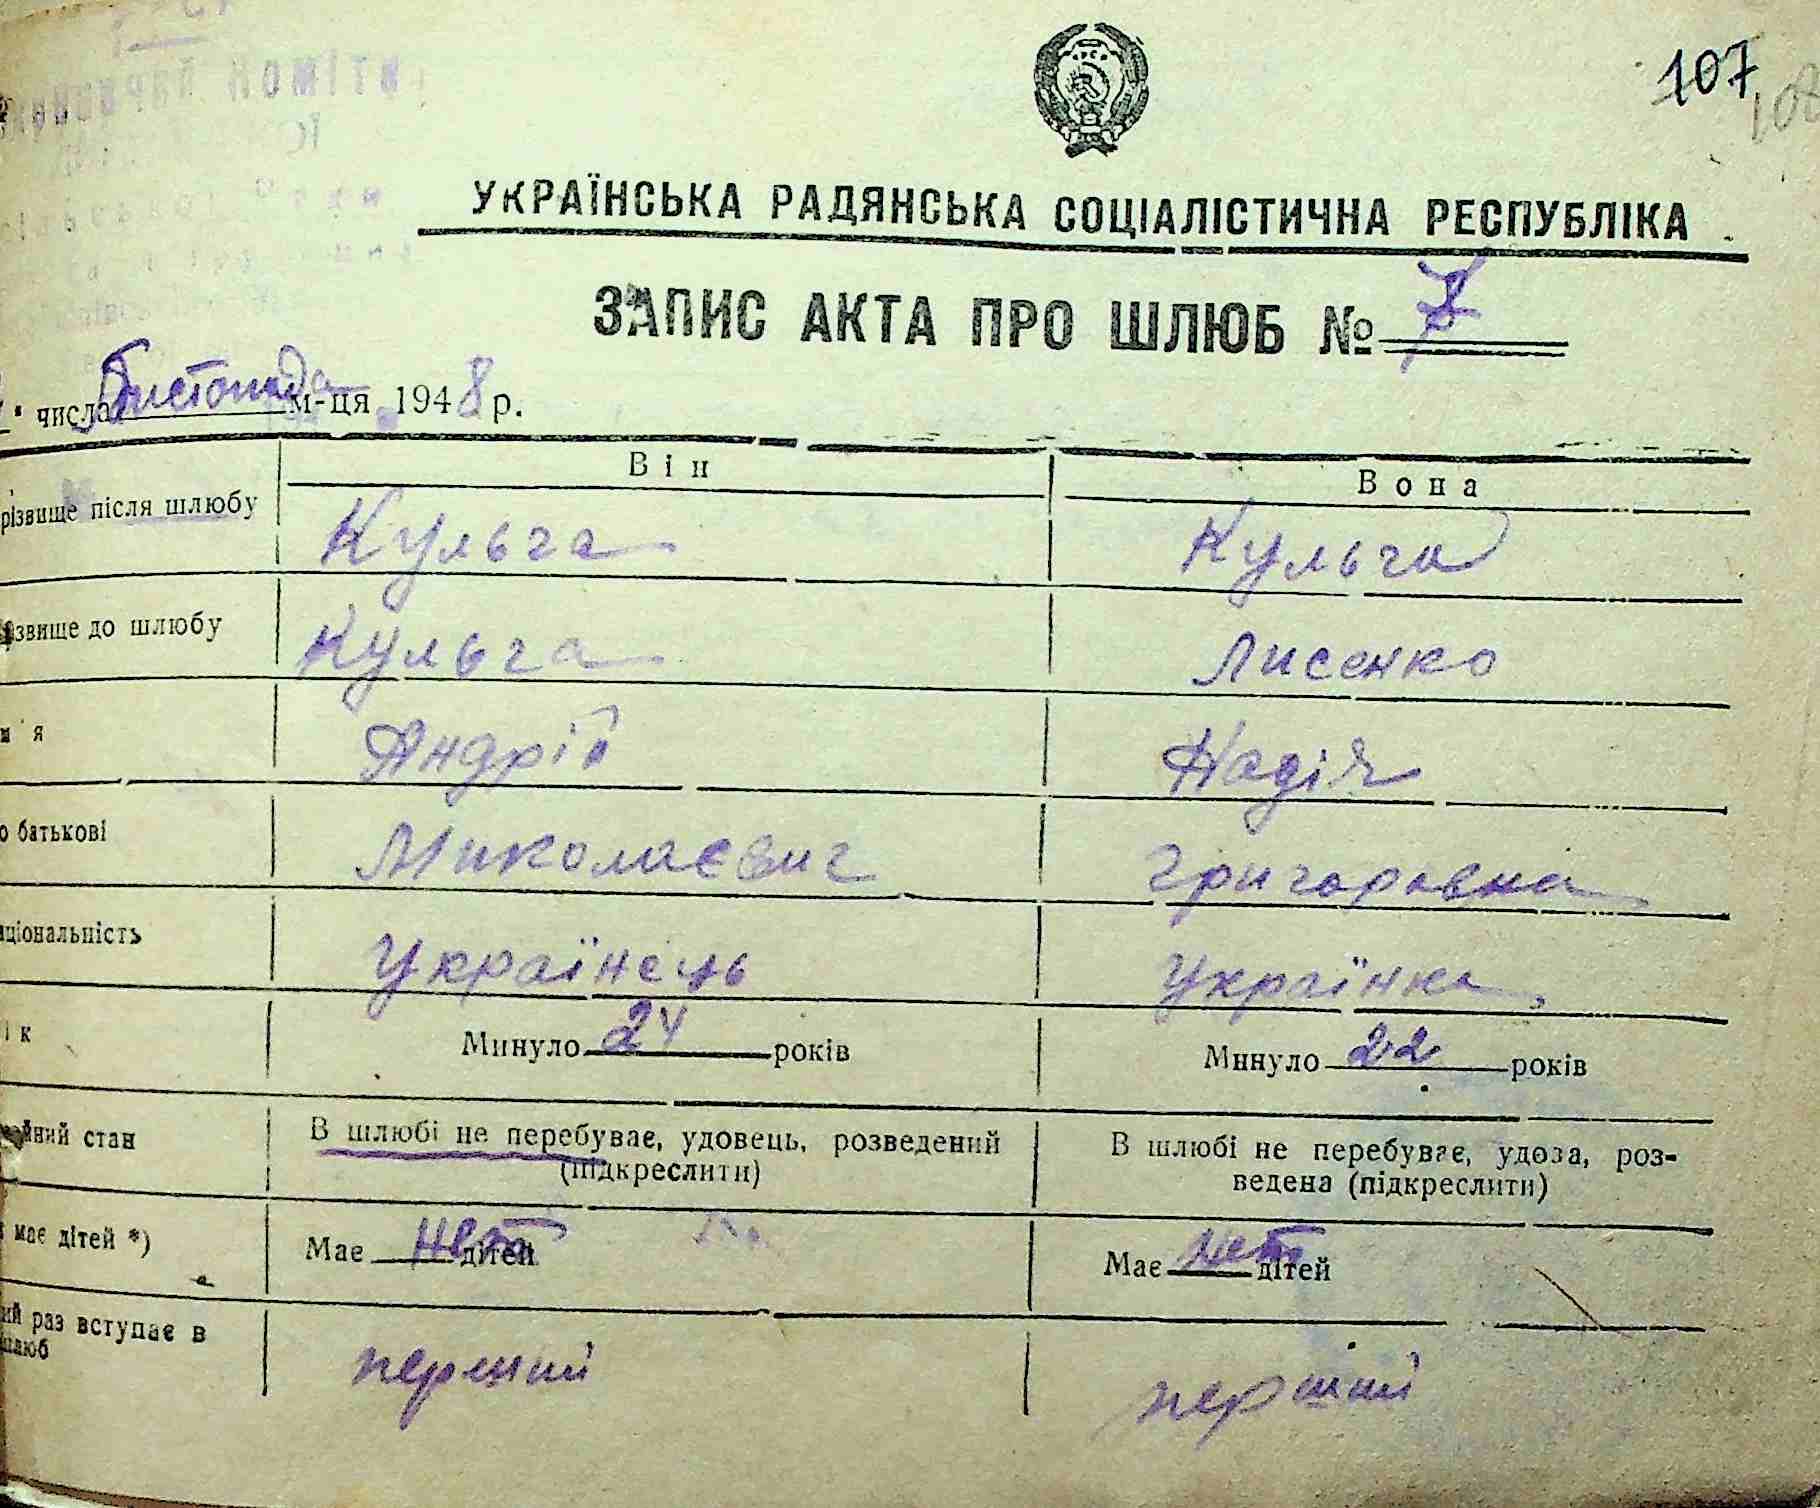 107
108
УКРАЇНСЬКА РАДЯНСЬКА СОЦІАЛІСТИЧНА РЕСПУБЛІКА
ЗАПИС АКТА ПРО ШЛЮБ №
числа Листопада м-ця 1948 р.
Він Вона
різвище після шлюбу Кульга Кульга
ізвище до шлюбу Кульга Лисенко
м'я Андрій Надія
о батькові Миколаєвич Григоровна
аціональність Українець Українка
ік Минуло 24 років Минуло 22 років
ейний стан В шлюбі не перебуває, удовець, розведений (підкреслити) В шлюбі не перебуває, удова, роз-
ведена (підкреслити)
має дітей *) Має нет дітей Має нет дітей
ий раз вступає в
шлюб перший перший